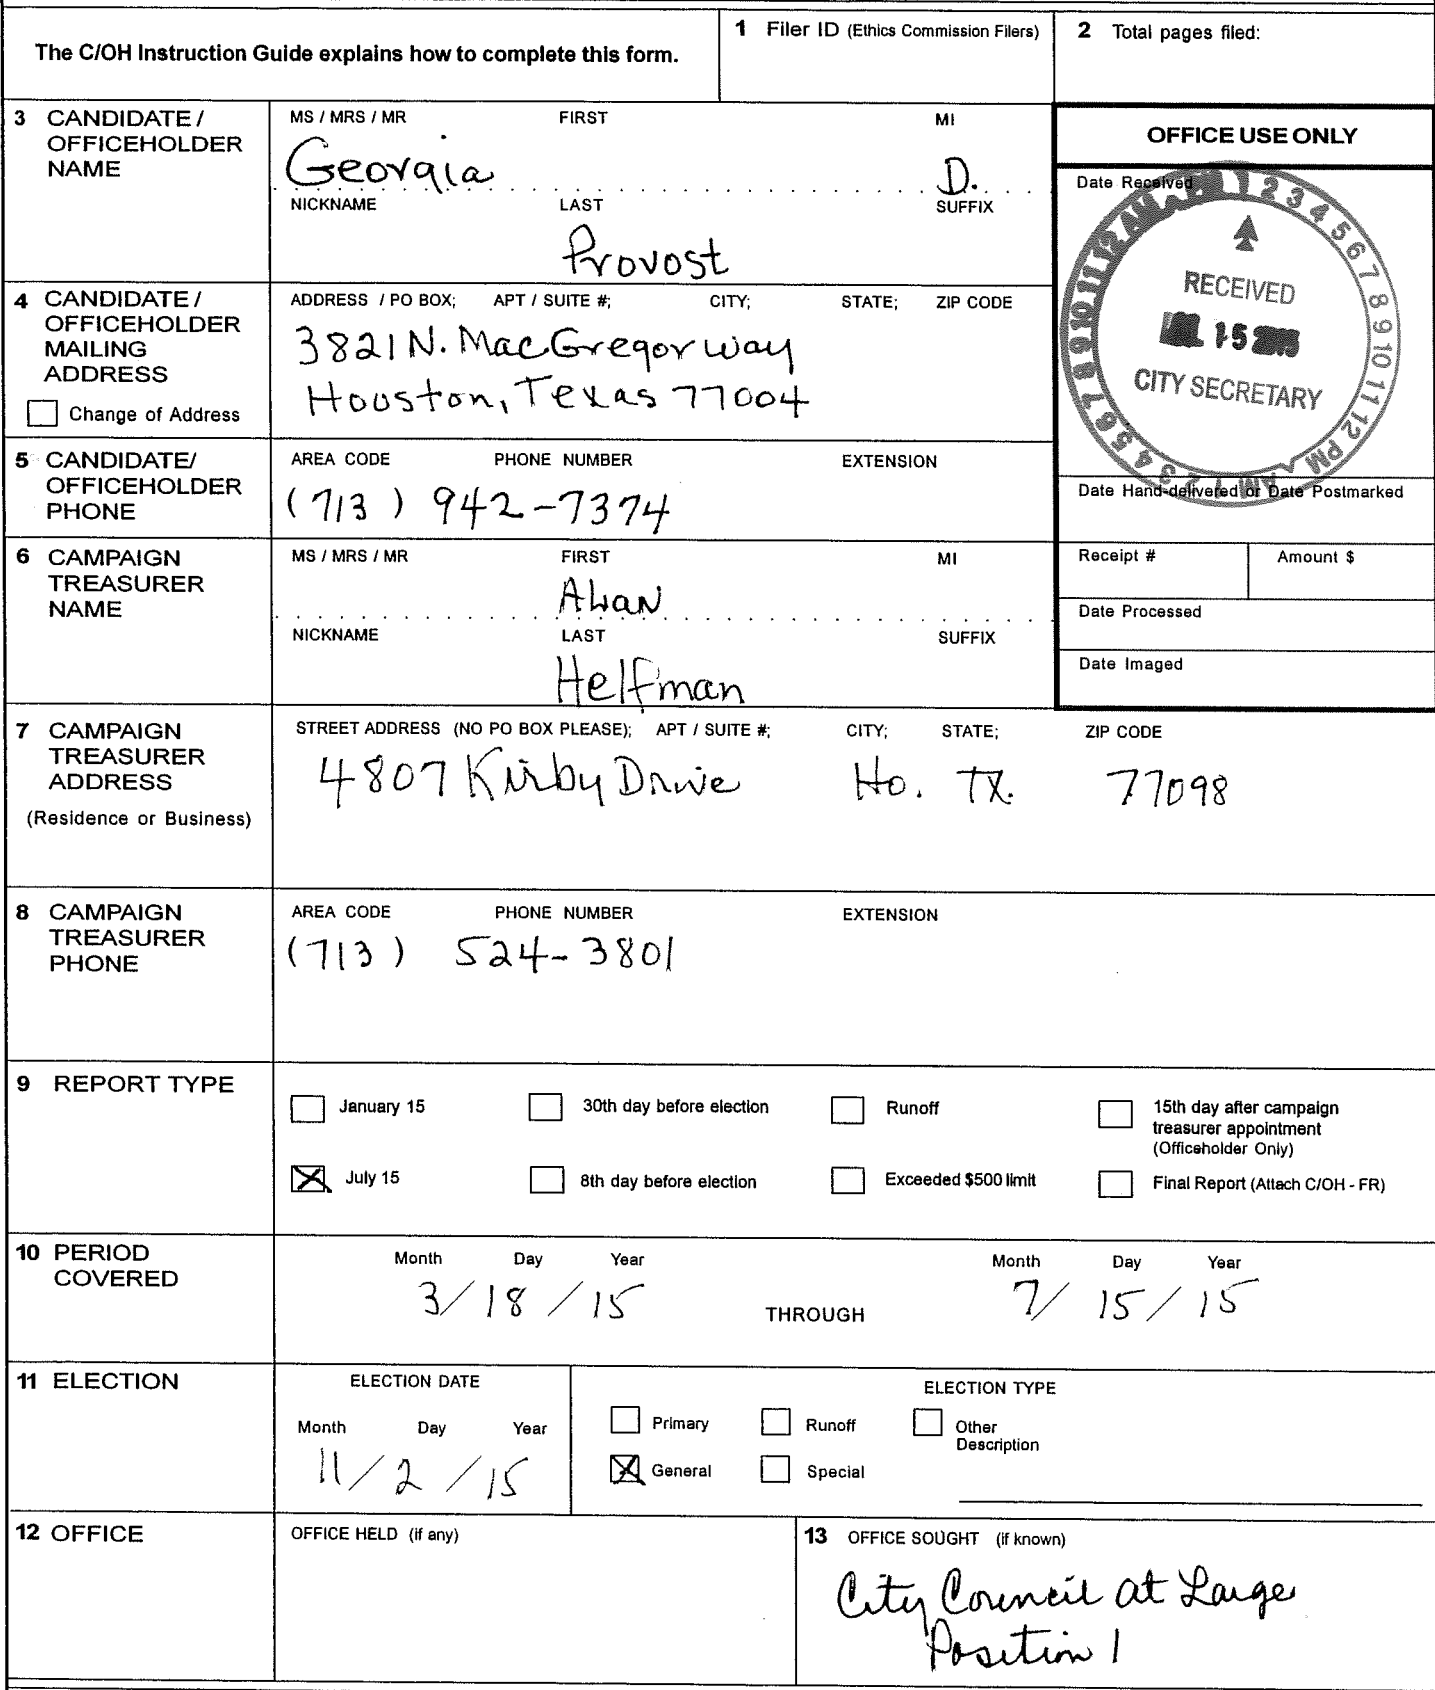 The C/OH Instruction Guide explains how to complete this form.
1 Filer ID (Ethics Commission Filers)
2 Total pages filed:
3 CANDIDATE / OFFICEHOLDER NAME
MS / MRS / MR FIRST MI
Georgia D.
NICKNAME LAST SUFFIX
Provost
OFFICE USE ONLY
Date Received
1 2 3 4 5 6 7 8 9 10 11 12 PM
AM 1 2 3 4 5 6 7 8 9 10 11 12
RECEIVED
15
CITY SECRETARY
Date Hand-delivered or Date Postmarked
Receipt # Amount $
Date Processed
Date Imaged
4 CANDIDATE / OFFICEHOLDER MAILING ADDRESS
Change of Address
ADDRESS / PO BOX; APT / SUITE #; CITY; STATE; ZIP CODE
3821 N. MacGregor Way
Houston, Texas 77004
5 CANDIDATE/ OFFICEHOLDER PHONE
AREA CODE PHONE NUMBER EXTENSION
(713) 942-7374
6 CAMPAIGN TREASURER NAME
MS / MRS / MR FIRST MI
Alan
NICKNAME LAST SUFFIX
Helfman
7 CAMPAIGN TREASURER ADDRESS
(Residence or Business)
STREET ADDRESS (NO PO BOX PLEASE); APT / SUITE #; CITY; STATE; ZIP CODE
4807 Kirby Drive Ho. TX. 77098
8 CAMPAIGN TREASURER PHONE
AREA CODE PHONE NUMBER EXTENSION
(713) 524-3801
9 REPORT TYPE
January 15 30th day before election Runoff 15th day after campaign treasurer appointment (Officeholder Only)
July 15 8th day before election Exceeded $500 limit Final Report (Attach C/OH - FR)
10 PERIOD COVERED
Month Day Year Month Day Year
3/18/15 THROUGH 7/15/15
11 ELECTION
ELECTION DATE
Month Day Year
11/2/15
ELECTION TYPE
Primary Runoff Other Description
General Special
12 OFFICE
OFFICE HELD (if any)
13 OFFICE SOUGHT (if known)
City Council at Large
Position 1